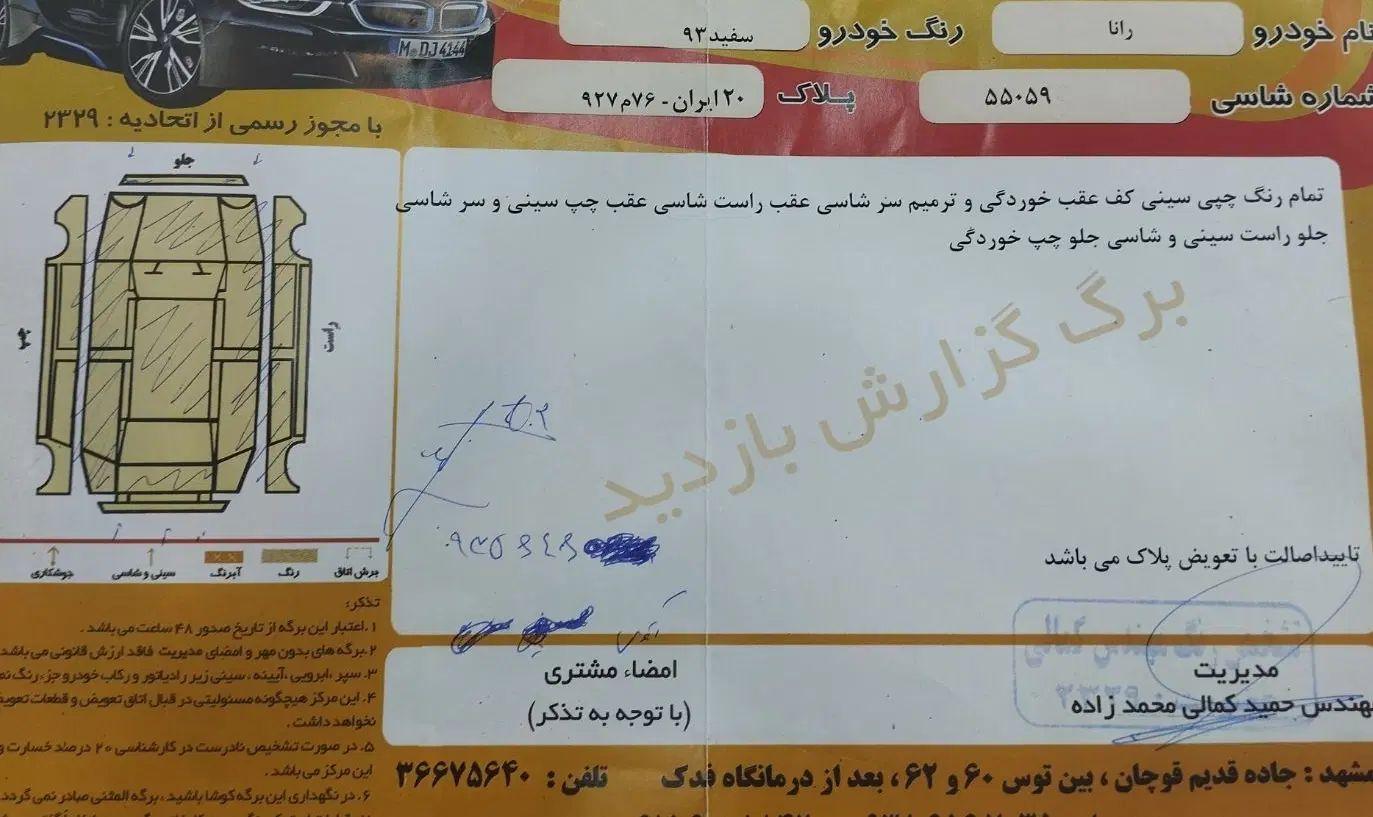 نام خودرو رانا رنگ خودرو سفید ۹۳
شماره شاسی ۵۵۰۵۹ پلاک ۲۰ ایران - ۷۶م۹۲۷
M DJ 4144
با مجوز رسمی از اتحادیه : ۲۳۲۹
جلو
راست
چپ
برش اتاق
رنگ
آبرنگ
سینی و شاسی
جوشکاری
تمام رنگ چپی سینی کف عقب خوردگی و ترمیم سر شاسی عقب راست شاسی عقب چپ سینی و سر شاسی
جلو راست سینی و شاسی جلو چپ خوردگی
برگ گزارش بازدید
تاییداصالت با تعویض پلاک می باشد
تذکر:
۱. اعتبار این برگه از تاریخ صدور ۴۸ ساعت می باشد .
۲. برگه های بدون مهر و امضای مدیریت فاقد ارزش قانونی می باشد
۳. سپر ، ابرویی ، آیینه ، سینی زیر رادیاتور و رکاب خودرو جزء رنگ
۴. این مرکز هیچگونه مسئولیتی در قبال اتاق تعویض و قطعات
نخواهد داشت .
۵. در صورت تشخیص نادرست در کارشناسی ۲۰ درصد خسارت و
این مرکز می باشد .
۶. در نگهداری این برگه کوشا باشید ، برگه المثنی صادر نمی گردد
امضاء مشتری
(با توجه به تذکر)
مدیریت
مهندس حمید کمالی محمد زاده
مشهد : جاده قدیم قوچان ، بین توس ۶۰ و ۶۲ ، بعد از درمانگاه فدک تلفن : ۳۶۶۷۵۶۴۰